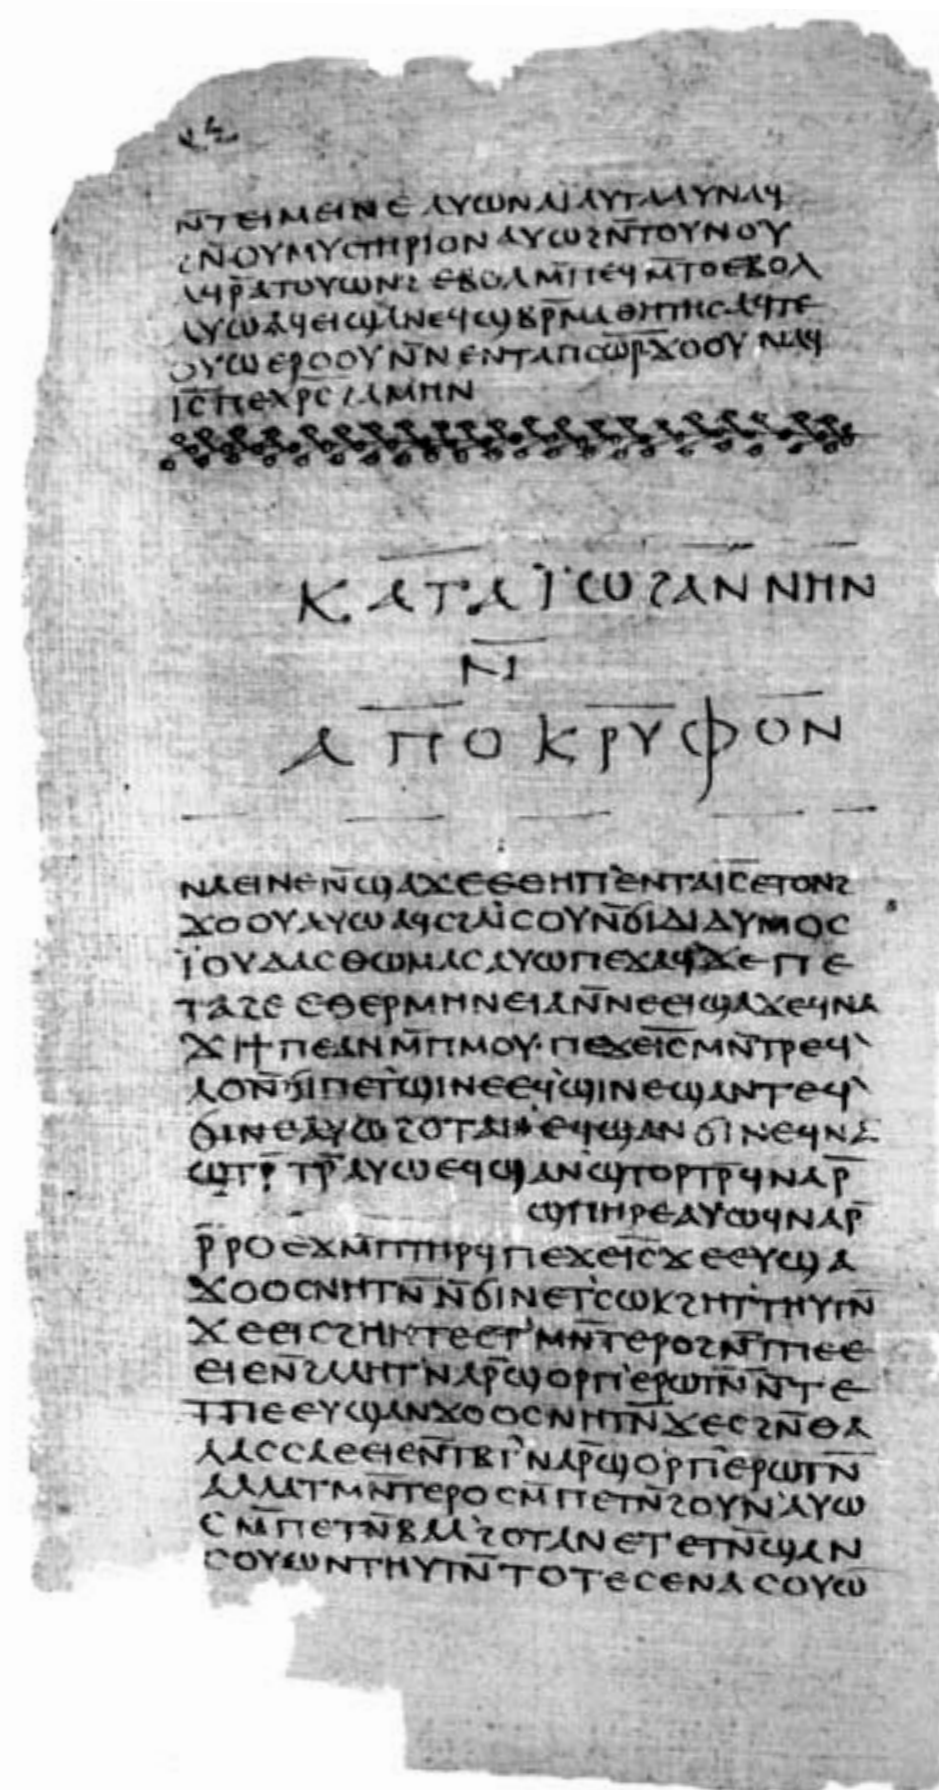 ⲗⲃ
ⲛ̄ⲧⲉⲓⲙⲉⲓⲛⲉ ⲁⲩⲱ ⲛⲁⲓ̈ ⲁⲩⲧⲁⲁⲩ ⲛⲁϥ
ϩⲛ̄ ⲟⲩⲙⲩⲥⲧⲏⲣⲓⲟⲛ ⲁⲩⲱ ϩⲛ̄ ⲧⲟⲩⲛⲟⲩ
ⲁϥⲣ̄ ⲁⲧⲟⲩⲱⲛϩ ⲉⲃⲟⲗ ⲙ̄ⲡⲉϥⲙ̄ⲧⲟ ⲉⲃⲟⲗ
ⲁⲩⲱ ⲁϥⲉⲓ ϣⲁ ⲛⲉϥϣⲃⲣ̄ⲙⲁⲑⲏⲧⲏⲥ ⲁϥⲧⲉ
ⲟⲩⲱ ⲉⲣⲟⲟⲩ ⲛ̄ⲛⲉⲛⲧⲁ ⲡⲥⲱ̅ⲣ̅ ϫⲟⲟⲩ ⲛⲁϥ
ⲓ̅ⲥ̅ ⲡⲉⲭⲣ̅ⲥ̅ ϩⲁⲙⲏⲛ
ⲕⲁⲧⲁ ⲓ̈ⲱϩⲁⲛⲛⲏⲛ
ⲛ̄
ⲁⲡⲟⲕⲣⲩⲫⲟⲛ
ⲛⲁⲉⲓ ⲛⲉ ⲛ̄ϣⲁϫⲉ ⲉⲑⲏⲡ` ⲉⲛⲧⲁ ⲓ̅ⲥ̅ ⲉⲧⲟⲛϩ
ϫⲟⲟⲩ ⲁⲩⲱ ⲁϥⲥϩⲁⲓ̈ⲥⲟⲩ ⲛ̄ϭⲓ ⲇⲓⲇⲩⲙⲟⲥ
ⲓ̈ⲟⲩⲇⲁⲥ ⲑⲱⲙⲁⲥ ⲁⲩⲱ ⲡⲉϫⲁϥ ϫⲉ ⲡⲉ
ⲧⲁϩⲉ ⲉⲑⲉⲣⲙⲏⲛⲉⲓⲁ ⲛ̄ⲛⲉⲉⲓϣⲁϫⲉ ϥⲛⲁ
ϫⲓ ϯⲡⲉ ⲁⲛ ⲙ̄ⲡⲙⲟⲩ· ⲡⲉϫⲉ ⲓ̅ⲥ̅ ⲙⲛ̄ⲧⲣⲉϥ`
ⲗⲟ ⲛ̄ϭⲓ ⲡⲉⲧ`ϣⲓⲛⲉ ⲉϥ`ϣⲓⲛⲉ ϣⲁⲛⲧⲉϥ`
ϭⲓⲛⲉ ⲁⲩⲱ ϩⲟⲧⲁⲛ ⲉϥϣⲁⲛϭⲓⲛⲉ ϥⲛⲁ
ϣⲧⲣ̄ⲧⲣ̄ ⲁⲩⲱ ⲉϥϣⲁⲛϣⲧⲟⲣⲧⲣ̄ ϥⲛⲁⲣ̄
ϣⲡⲏⲣⲉ ⲁⲩⲱ ϥⲛⲁⲣ̄
ⲣ̄ⲣⲟ ⲉϫⲙ̄ ⲡⲧⲏⲣϥ ⲡⲉϫⲉ ⲓ̅ⲥ̅ ϫⲉ ⲉⲩϣⲁ
ϫⲟⲟⲥ ⲛⲏⲧⲛ̄ ⲛ̄ϭⲓ ⲛⲉⲧ`ⲥⲱⲕ ϩⲏⲧ` ⲧⲏⲩⲧⲛ̄
ϫⲉ ⲉⲓⲥ ϩⲏⲏⲧⲉ ⲉⲧ`ⲙⲛ̄ⲧⲉⲣⲟ ϩⲛ̄ ⲧⲡⲉ ⲉ
ⲉⲓⲉ ⲛ̄ϩⲁⲗⲏⲧ` ⲛⲁⲣ̄ ϣⲟⲣⲡ` ⲉⲣⲱⲧⲛ̄ ⲛ̄ⲧⲉ
ⲧⲡⲉ ⲉⲩϣⲁⲛϫⲟⲟⲥ ⲛⲏⲧⲛ̄ ϫⲉ ⲥϩⲛ̄ ⲑⲁ
ⲗⲁⲥⲥⲁ ⲉⲉⲓⲉ ⲛ̄ⲧⲃⲧ` ⲛⲁⲣ̄ ϣⲟⲣⲡ` ⲉⲣⲱⲧⲛ̄
ⲁⲗⲗⲁ ⲧⲙⲛ̄ⲧⲉⲣⲟ ⲥⲙ̄ⲡⲉⲧⲛ̄ϩⲟⲩⲛ` ⲁⲩⲱ
ⲥⲙ̄ⲡⲉⲧⲛ̄ⲃⲁⲗ` ϩⲟⲧⲁⲛ ⲉⲧⲉⲧⲛ̄ϣⲁⲛ
ⲥⲟⲩⲱⲛ ⲧⲏⲩⲧⲛ̄ ⲧⲟⲧⲉ ⲥⲉⲛⲁⲥⲟⲩⲱ